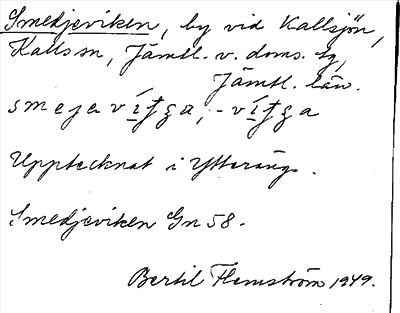 Smedjeviken, by vid Kallsjön,
Kall sn, Jämtl. v. doms. tg,
Jämtl. län.
Upptecknat i Ytteräng.
Smedjeviken Gn 58.
Bertil Flemström 1949.